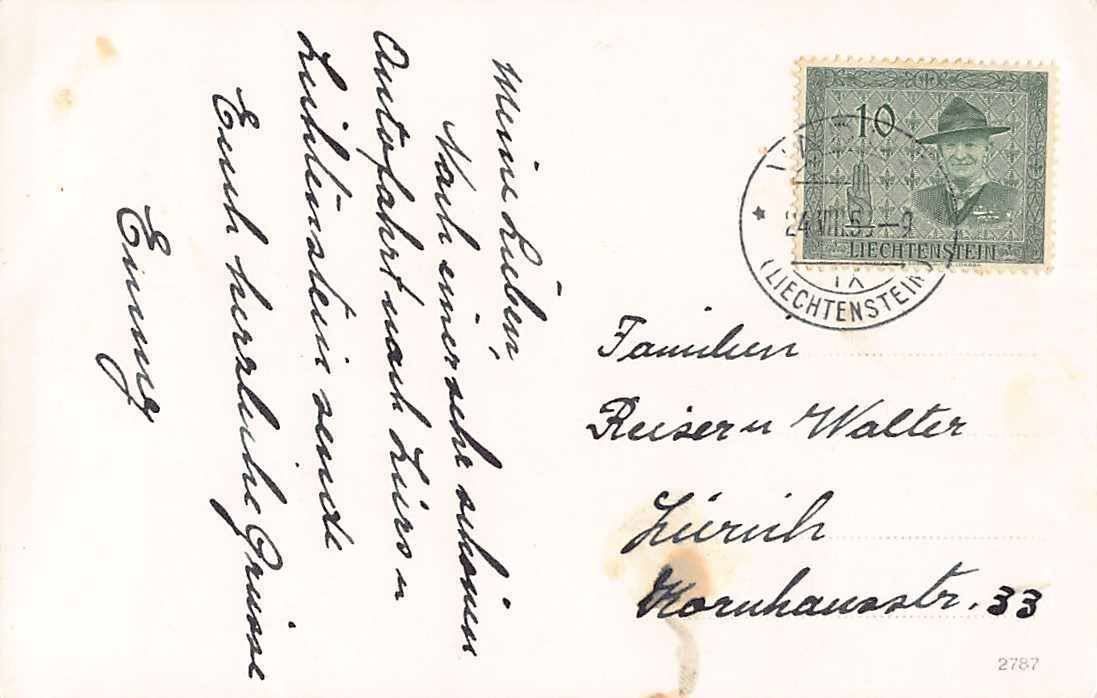 Meine Lieben,
Nach einer sehr schönen
Autofahrt nach Zürs u
Lichtenstein sende
Euch herzliche Grüsse
10
LIECHTENSTEIN
24.VIII.5 -9
(LIECHTENSTEIN)
Familien
Reiser u Walter
Zürich
Kornhausstr. 33
2787